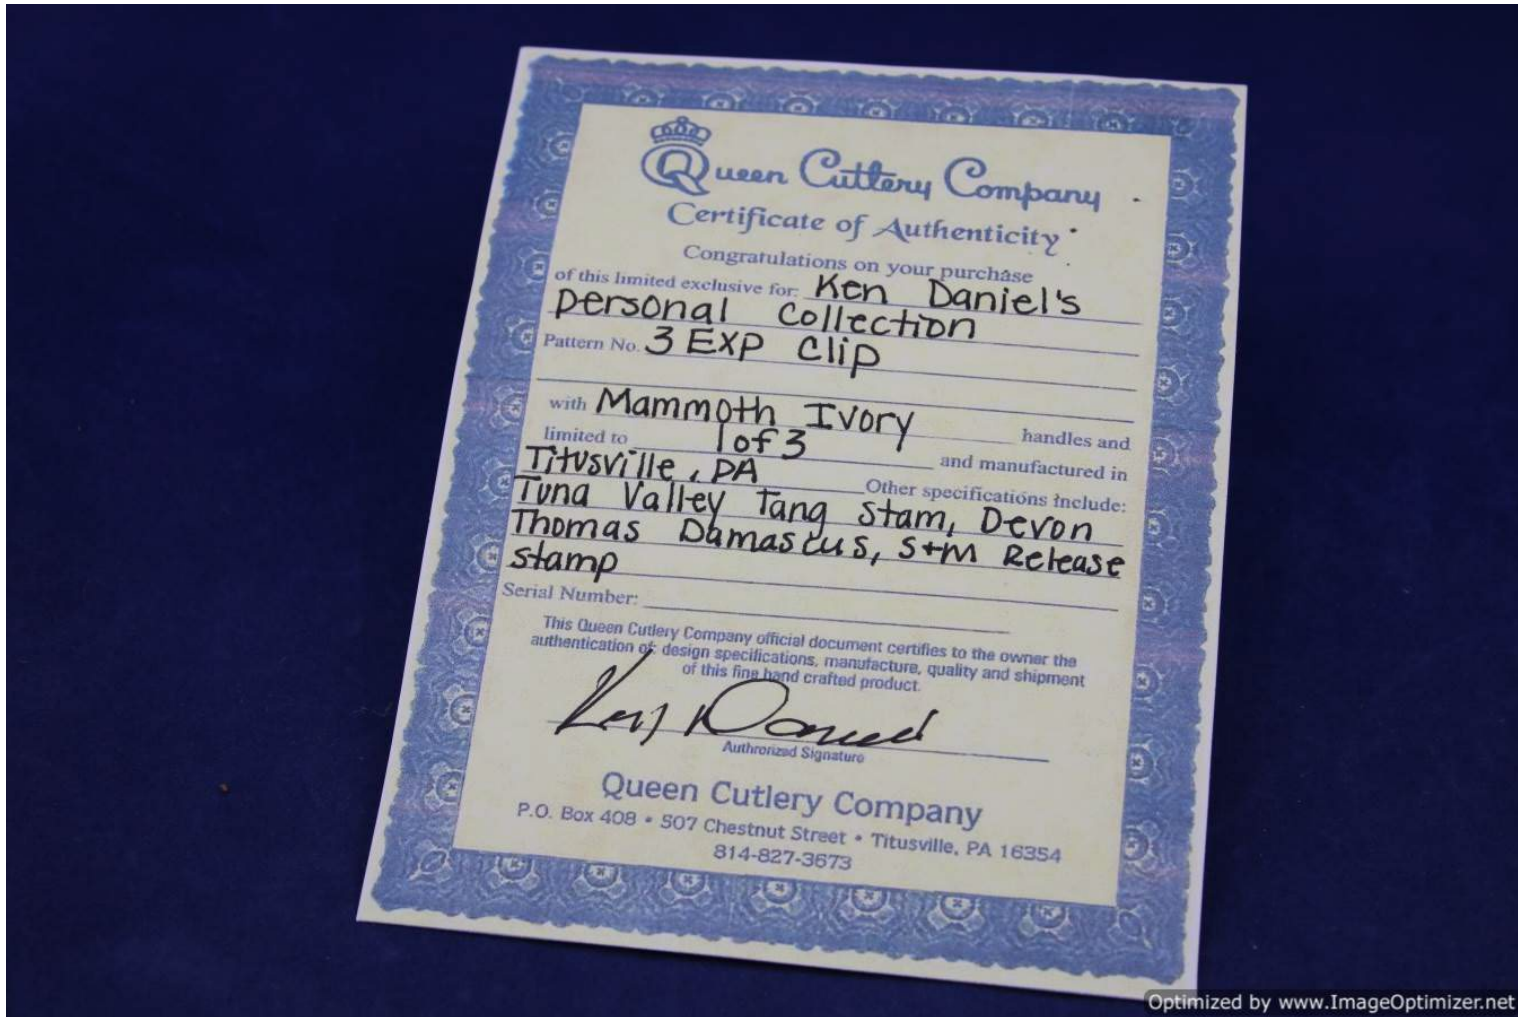 Queen Cutlery Company
Certificate of Authenticity
Congratulations on your purchase
of this limited exclusive for: Ken Daniel's
personal Collection
Pattern No. 3 EXP Clip
with Mammoth Ivory handles and
limited to 1 of 3 and manufactured in
Titusville, PA Other specifications include:
Tuna Valley Tang Stam, Devon
Thomas Damascus, S+M Release
stamp
Serial Number:
This Queen Cutlery Company official document certifies to the owner the
authentication of: design specifications, manufacture, quality and shipment
of this fine hand crafted product.
Authrorized Signature
Queen Cutlery Company
P.O. Box 408 • 507 Chestnut Street • Titusville, PA 16354
814-827-3673
Optimized by www.ImageOptimizer.net